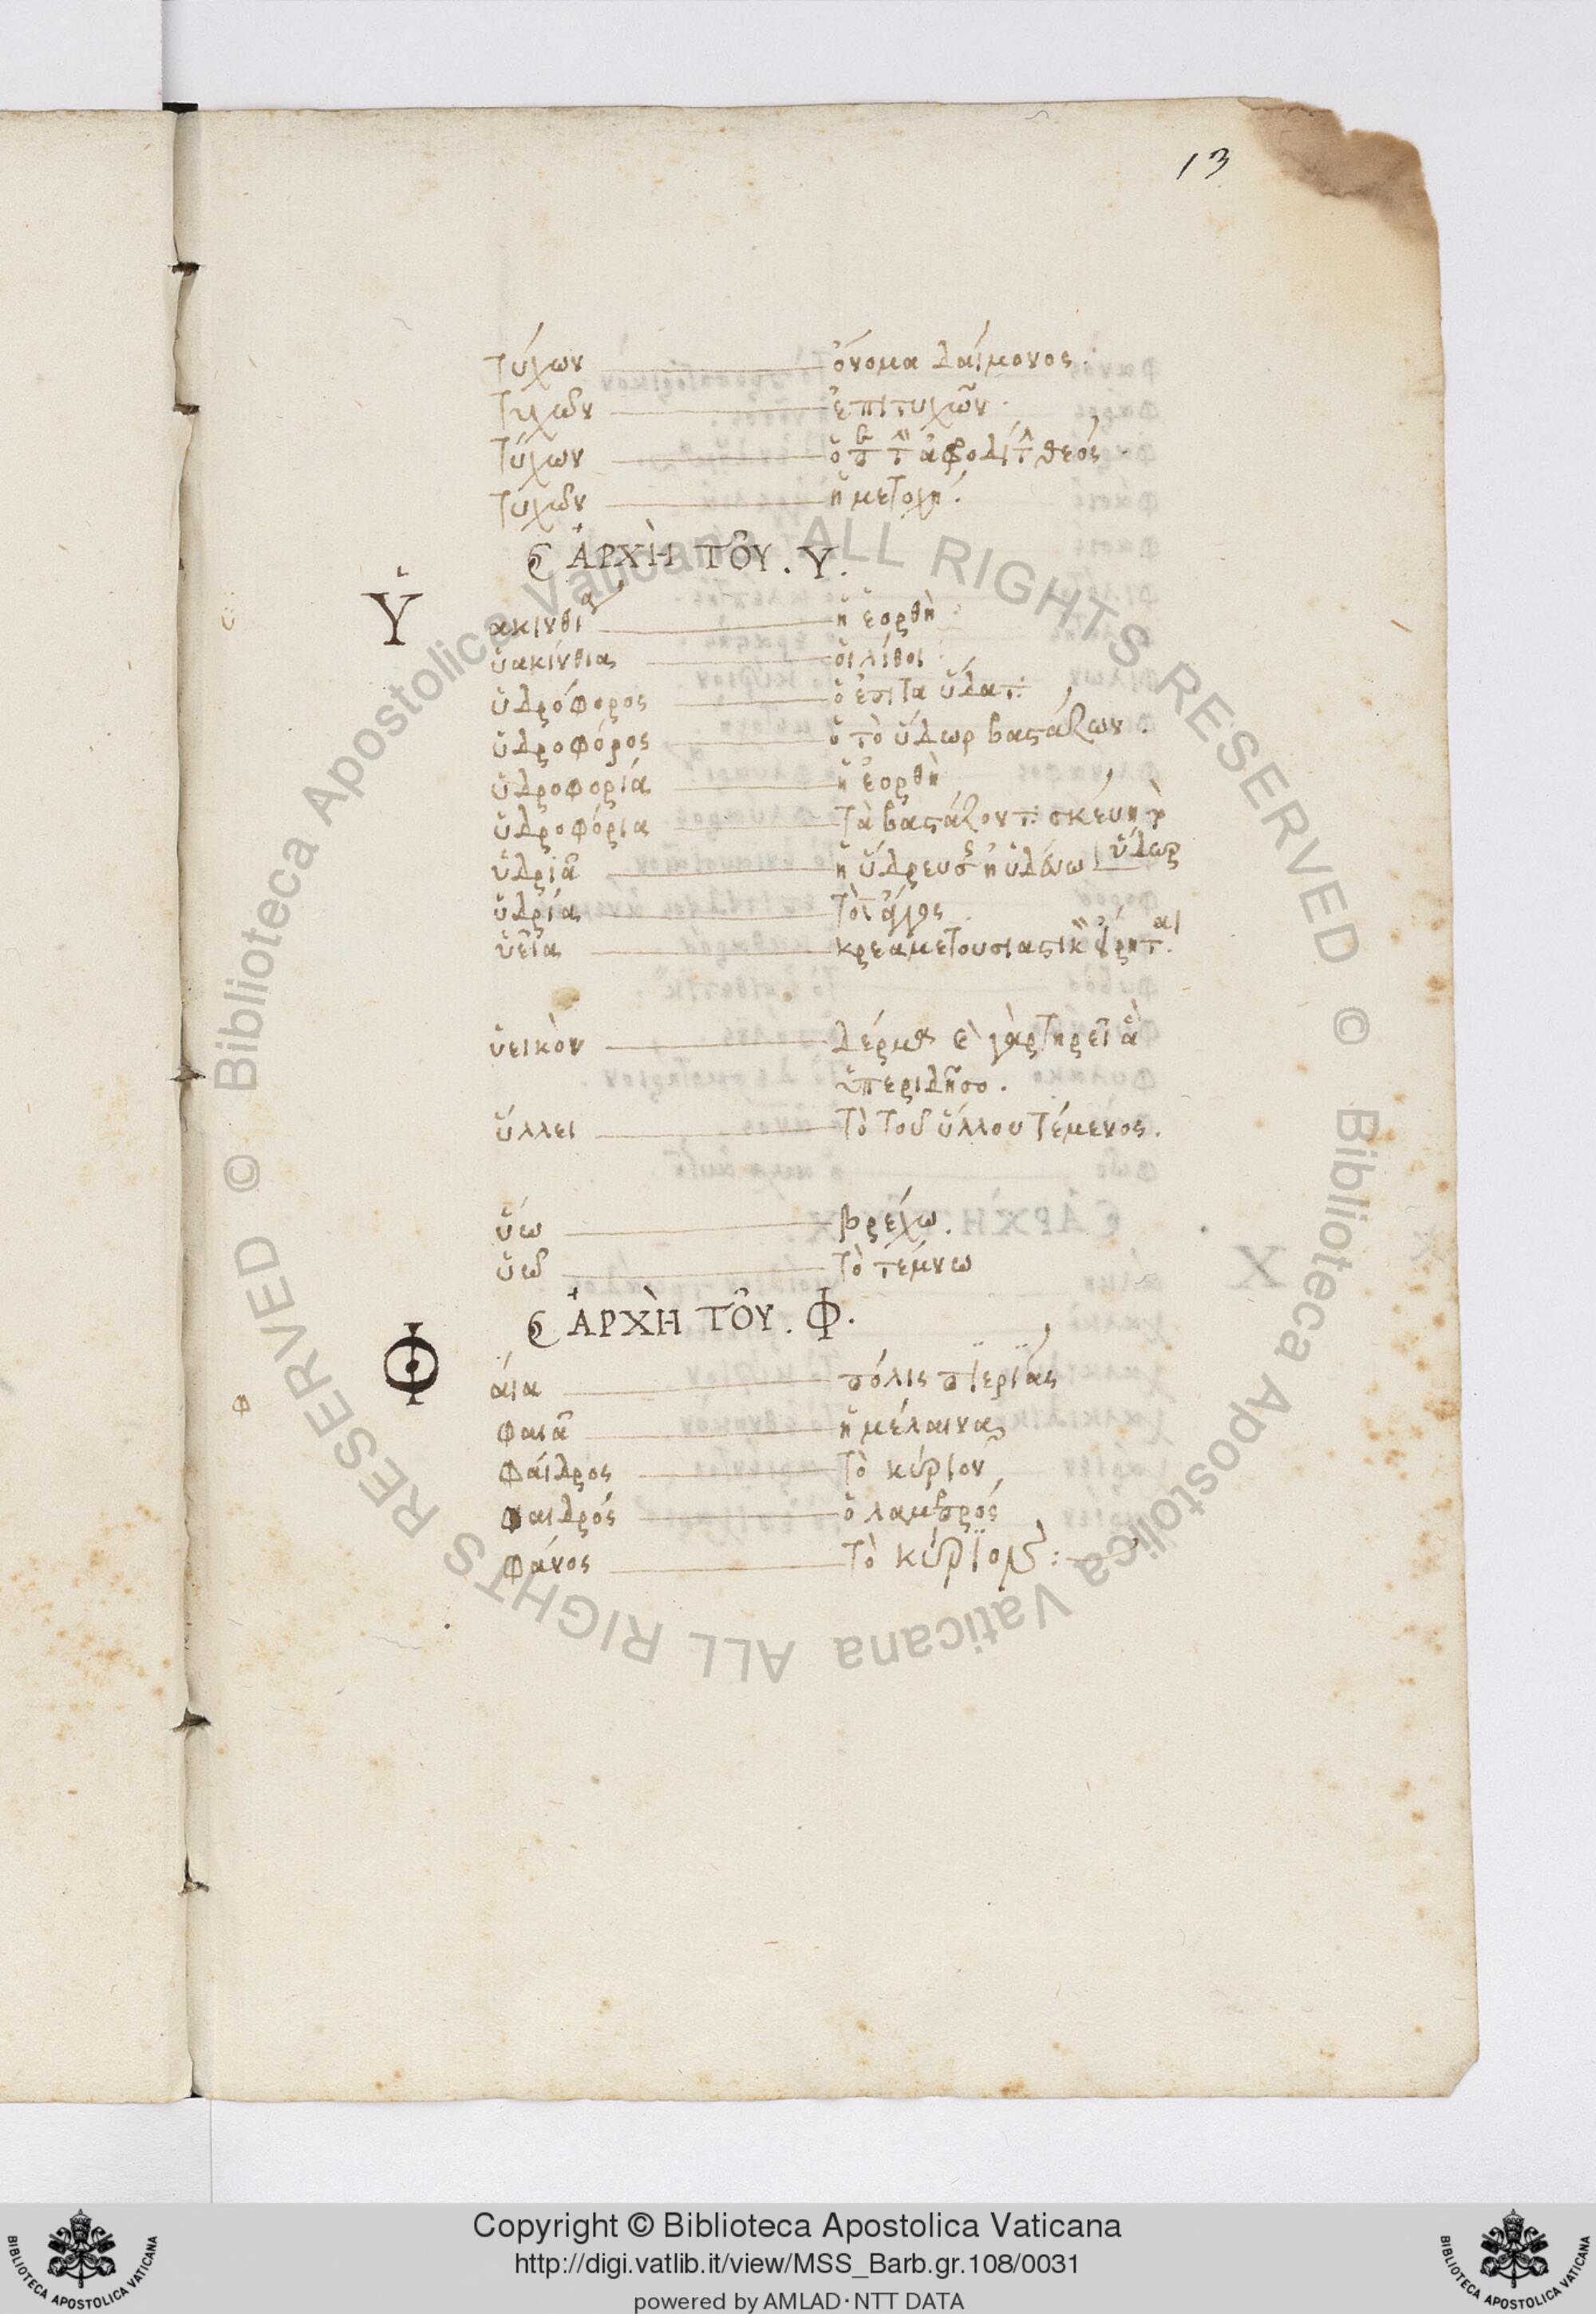 13
τύχων ὄνομα δαίμονος.
τυχῶν ἐπιτυχῶν.
τύχων ὁ θεός
τυχῶν ἡ μετοχή.
ἈΡΧῊ ΤΟΥ͂. Υ.
Ὑακινθι ἡ ἑορθὴ
ὑακίνθιας οἱ λίθοι
ὑδρόφορος ὁ ἐπὶ τα ὕδατ:
ὑδροφόρος ὁ τὸ ὕδωρ βαϛάζων.
ὑδροφορία ἡ ἑορθὴ
ὑδροφόρια τὰ βαϛάζοντ: σκεύη
ὑδριᾶ ἡ ὕδρευσ ὕδωρ
ὑδρία τὸ
ὑεῖα κρεα
ὑεικὸν δέρμα
ὕλλει τὸ τοῦ ὕλλου τέμενος.
ὕω βρέχω.
ὑῶ τὸ τέμνω
ἈΡΧῊ ΤΟΥ͂. Φ.
Φάια πόλις πϊερϊάς
φαιᾶ ἡ μέλαινα
φάιδρος τὸ κύριον
φαιδρός ὁ λαμπρός
φάνος τὸ κύρϊον:
Copyright © Biblioteca Apostolica Vaticana
http://digi.vatlib.it/view/MSS_Barb.gr.108/0031
powered by AMLAD·NTT DATA
BIBLIOTECA APOSTOLICA VATICANA
BIBLIOTECA APOSTOLICA VATICANA
© Biblioteca Apostolica Vaticana ALL RIGHTS RESERVED © Biblioteca Apostolica Vaticana ALL RIGHTS RESERVED